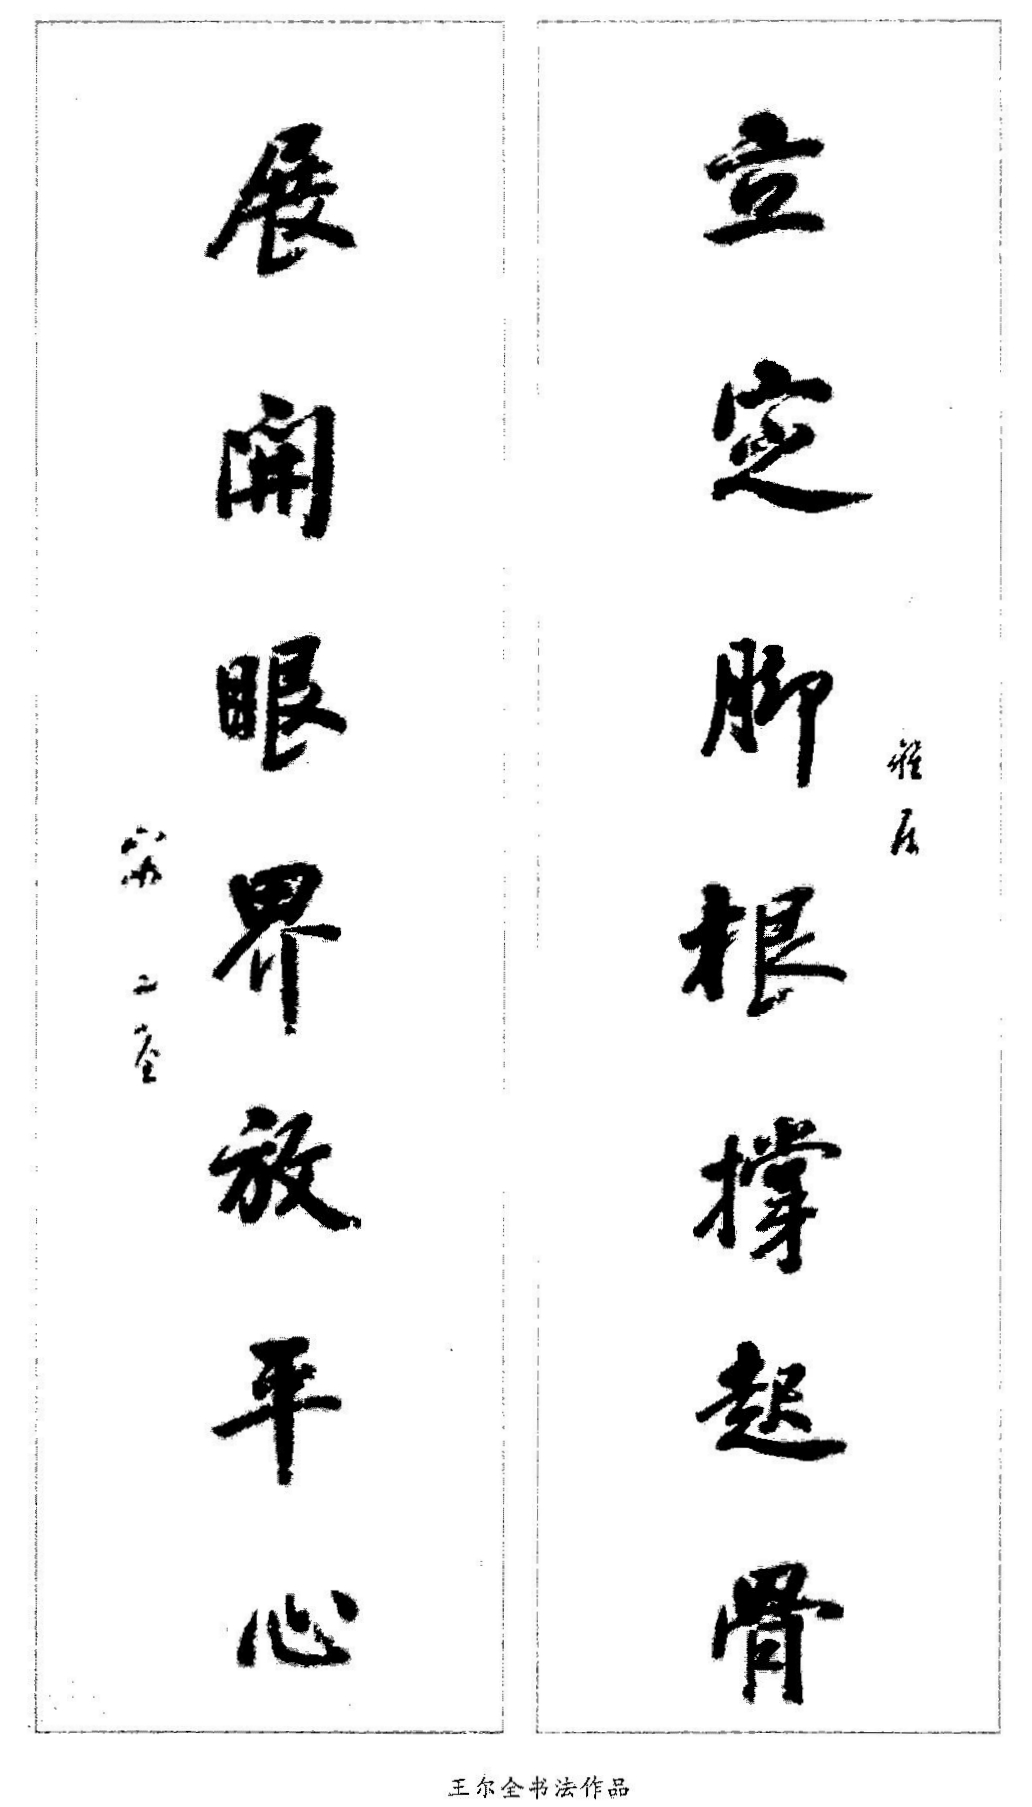 雅居
立定脚根撑起骨
展開眼界放平心
二全
王尔全书法作品